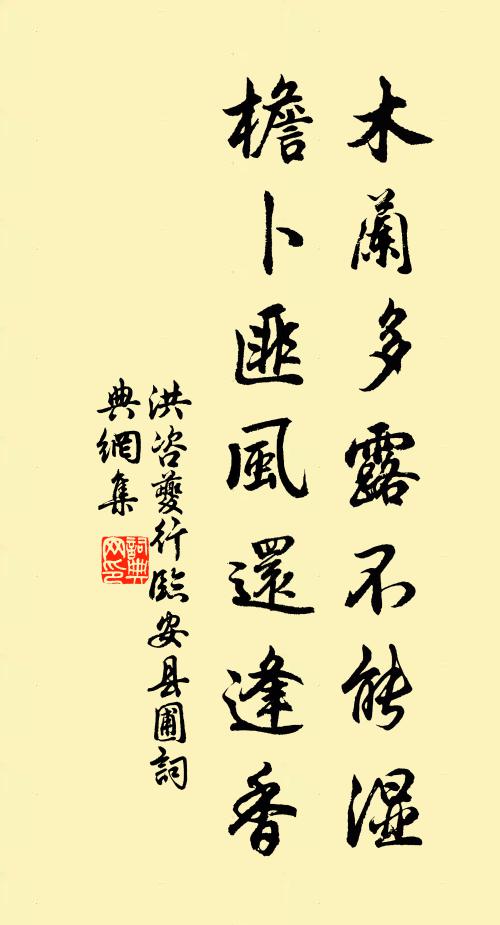 木蘭多露不能湿
檐卜匪風還逢香
洪咨夔行臨安县圃詞
典網集
詞典
网印